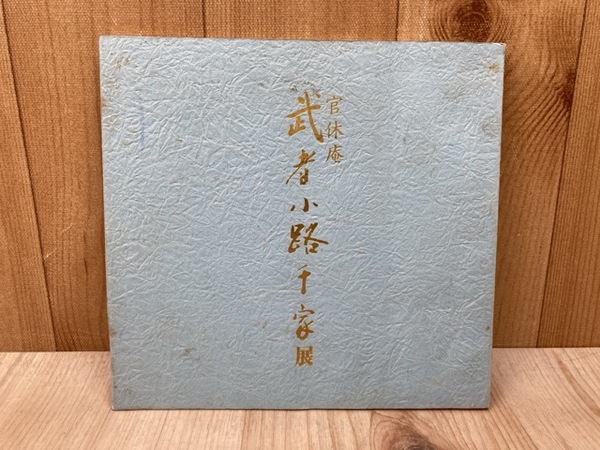 官休庵
武者小路千家展